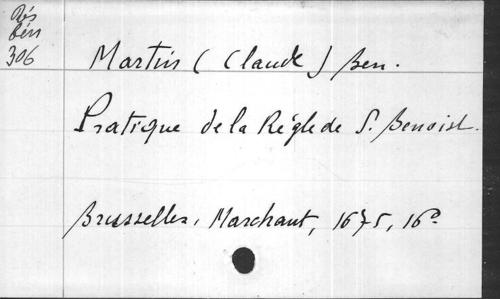 Rés
Bén
306
Martin (Claude) Ben.
Pratique de la Règle de S. Benoist.
Brusselles, Marchant, 1675, 16°